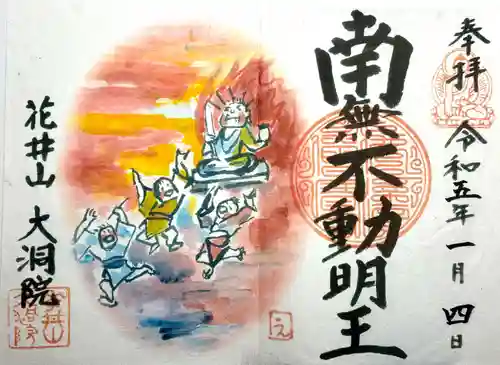 奉拝
令和五年一月四日
南無不動明王
え
花井山 大洞院